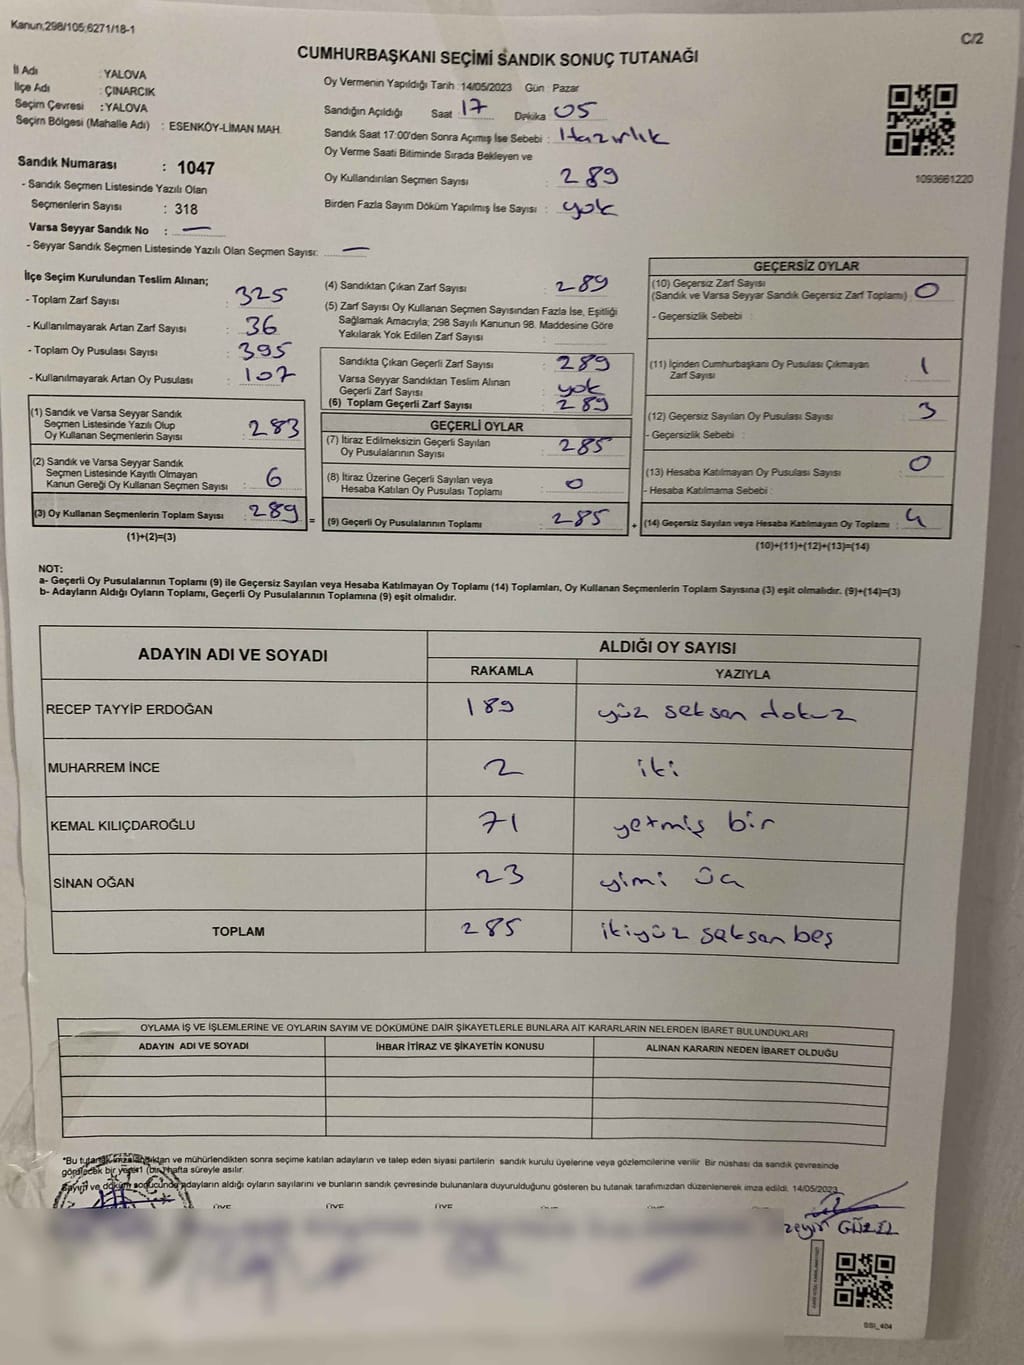 Kanun;298/105;6271/18-1
C/2
CUMHURBAŞKANI SEÇİMİ SANDIK SONUÇ TUTANAĞI
İl Adı : YALOVA
İlçe Adı : ÇINARCIK
Seçim Çevresi : YALOVA
Seçim Bölgesi (Mahalle Adı) : ESENKÖY-LİMAN MAH.
Sandık Numarası : 1047
- Sandık Seçmen Listesinde Yazılı Olan
Seçmenlerin Sayısı : 318
Varsa Seyyar Sandık No : —
- Seyyar Sandık Seçmen Listesinde Yazılı Olan Seçmen Sayısı: —
Oy Vermenin Yapıldığı Tarih :14/05/2023 Gün : Pazar
Sandığın Açıldığı Saat 17 Dakika 05
Sandık Saat 17:00'den Sonra Açımış İse Sebebi : Hazırlık
Oy Verme Saati Bitiminde Sırada Bekleyen ve
Oy Kullandırılan Seçmen Sayısı : 289
Birden Fazla Sayım Döküm Yapılmış İse Sayısı : yok
1093661220
İlçe Seçim Kurulundan Teslim Alınan;
- Toplam Zarf Sayısı : 325
- Kullanılmayarak Artan Zarf Sayısı : 36
- Toplam Oy Pusulası Sayısı : 395
- Kullanılmayarak Artan Oy Pusulası : 107
(1) Sandık ve Varsa Seyyar Sandık
Seçmen Listesinde Yazılı Olup
Oy Kullanan Seçmenlerin Sayısı : 283
(2) Sandık ve Varsa Seyyar Sandık
Seçmen Listesinde Kayıtlı Olmayan
Kanun Gereği Oy Kullanan Seçmen Sayısı : 6
(3) Oy Kullanan Seçmenlerin Toplam Sayısı : 289
(1)+(2)=(3)
(4) Sandıktan Çıkan Zarf Sayısı : 289
(5) Zarf Sayısı Oy Kullanan Seçmen Sayısından Fazla İse, Eşitliği
Sağlamak Amacıyla; 298 Sayılı Kanunun 98. Maddesine Göre
Yakılarak Yok Edilen Zarf Sayısı :
Sandıkta Çıkan Geçerli Zarf Sayısı : 289
Varsa Seyyar Sandıktan Teslim Alınan
Geçerli Zarf Sayısı : yok
(6) Toplam Geçerli Zarf Sayısı : 289
GEÇERLİ OYLAR
(7) İtiraz Edilmeksizin Geçerli Sayılan
Oy Pusulalarının Sayısı : 285
(8) İtiraz Üzerine Geçerli Sayılan veya
Hesaba Katılan Oy Pusulası Toplamı : 0
= (9) Geçerli Oy Pusulalarının Toplamı : 285
GEÇERSİZ OYLAR
(10) Geçersiz Zarf Sayısı
(Sandık ve Varsa Seyyar Sandık Geçersiz Zarf Toplamı) : 0
- Geçersizlik Sebebi :
(11) İçinden Cumhurbaşkanı Oy Pusulası Çıkmayan
Zarf Sayısı : 1
(12) Geçersiz Sayılan Oy Pusulası Sayısı : 3
- Geçersizlik Sebebi :
(13) Hesaba Katılmayan Oy Pusulası Sayısı : 0
- Hesaba Katılmama Sebebi :
+ (14) Geçersiz Sayılan veya Hesaba Katılmayan Oy Toplamı : 4
(10)+(11)+(12)+(13)=(14)
NOT:
a- Geçerli Oy Pusulalarının Toplamı (9) ile Geçersiz Sayılan veya Hesaba Katılmayan Oy Toplamı (14) Toplamları, Oy Kullanan Seçmenlerin Toplam Sayısına (3) eşit olmalıdır. (9)+(14)=(3)
b- Adayların Aldığı Oyların Toplamı, Geçerli Oy Pusulalarının Toplamına (9) eşit olmalıdır.
ADAYIN ADI VE SOYADI ALDIĞI OY SAYISI
RAKAMLA YAZIYLA
RECEP TAYYİP ERDOĞAN 189 yüz seksen dokuz
MUHARREM İNCE 2 iki
KEMAL KILIÇDAROĞLU 71 yetmiş bir
SİNAN OĞAN 23 yimi üç
TOPLAM 285 ikiyüz seksen beş
OYLAMA İŞ VE İŞLEMLERİNE VE OYLARIN SAYIM VE DÖKÜMÜNE DAİR ŞİKAYETLERLE BUNLARA AİT KARARLARIN NELERDEN İBARET BULUNDUKLARI
ADAYIN ADI VE SOYADI İHBAR İTİRAZ VE ŞİKAYETİN KONUSU ALINAN KARARIN NEDEN İBARET OLDUĞU
*Bu tutanak imzalandıktan ve mühürlendikten sonra seçime katılan adayların ve talep eden siyasi partilerin sandık kurulu üyelerine veya gözlemcilerine verilir. Bir nüshası da sandık çevresinde
görülecek bir yere (bir) hafta süreyle asılır.
Sayım ve döküm sonucunda adayların aldığı oyların sayılarını ve bunların sandık çevresinde bulunanlara duyurulduğunu gösteren bu tutanak tarafımızdan düzenlenerek imza edildi. 14/05/2023
ÜYE ÜYE ÜYE
GÜZEL
SSI_404